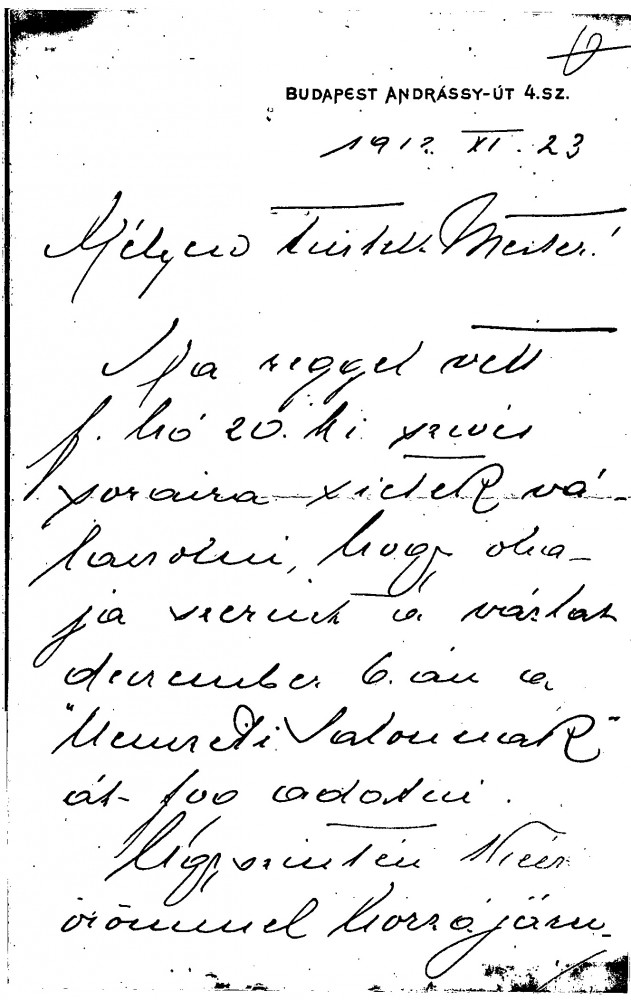 BUDAPEST ANDRÁSSY-ÚT 4.SZ.
1912. XI. 23
Mélyen tisztelt Mester!
Ma reggel vett
f. hó 20.ki szives
soraira sietek vá-
laszolni, hogy óha-
ja szerint a vázlat
december 6.án a
"Nemzeti Salonnak"
át fog adatni.
Úgyszintén kész
örömmel hozzájáru-